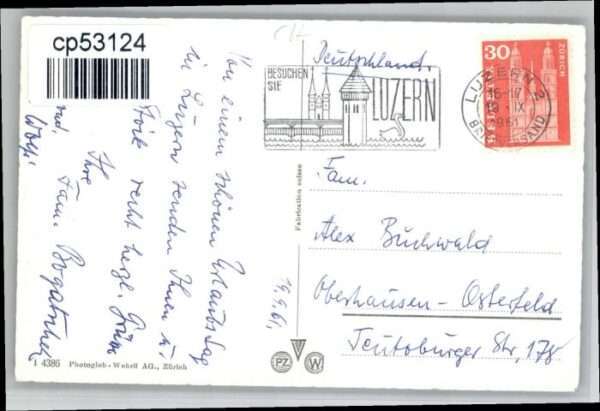 cp53124
Von einem schönen Urlaubstag
in Luzern senden Ihnen u.
recht herzl. Grüße
Ihre
Fam.
Deutschland.
BESUCHEN
SIE
LUZERN
30
ZÜRICH
HELVETIA
LUZERN 2
16-17
19. IX
1961
BRIEFVERSAND
Fam.
Alex Buchwald
Oberhausen-Osterfeld
Teutoburger Str. 178
19.9.61.
Fabrication suisse
PZ W
1 4386 Photoglob-Wehrli AG., Zürich